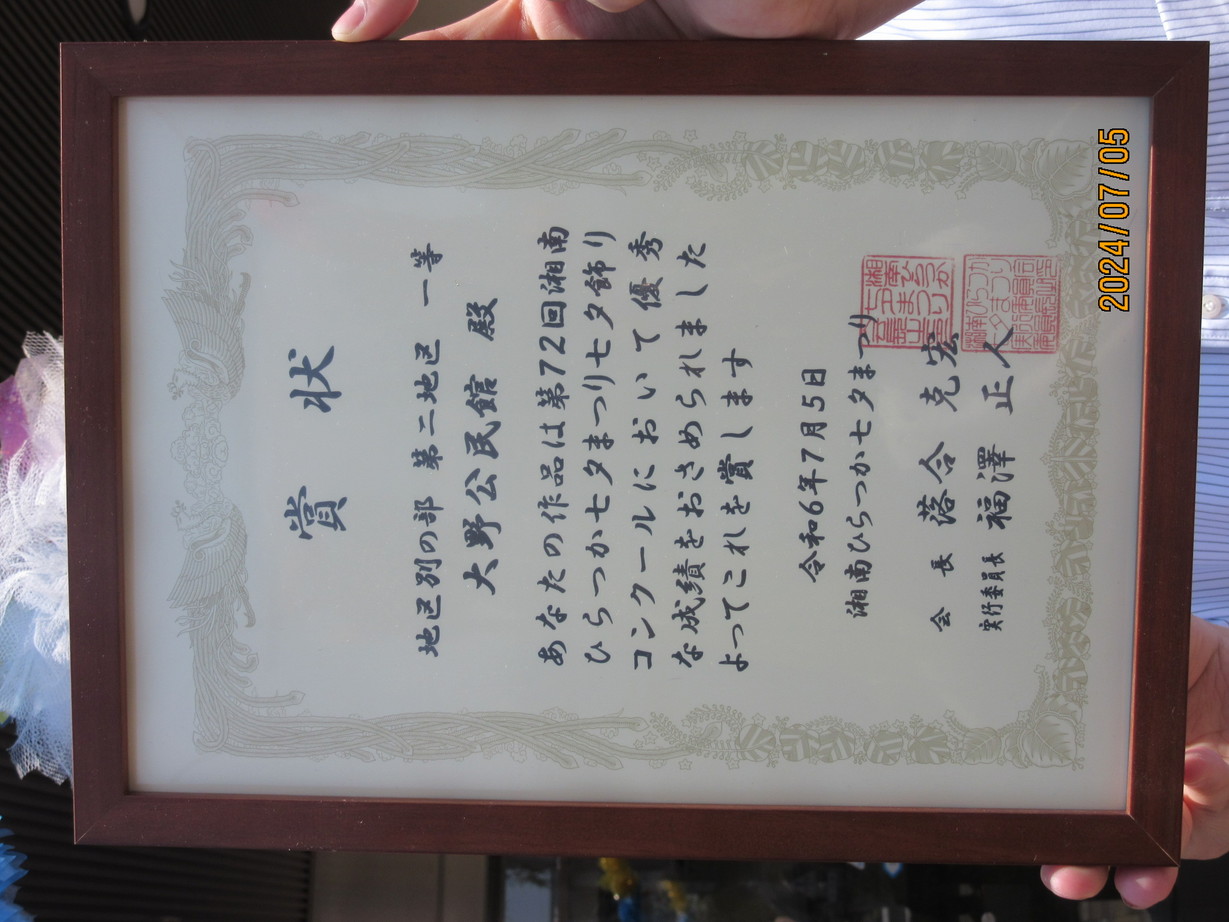 賞状
地区別の部 第二地区 一等
大野公民館 殿
あなたの作品は第72回湘南
ひらつか七夕まつり七夕飾り
コンクールにおいて優秀
な成績をおさめられました
よってこれを賞します
令和6年7月5日
湘南ひらつか七夕まつり
会長 落合克宏
実行委員長 福澤正人
2024/07/05